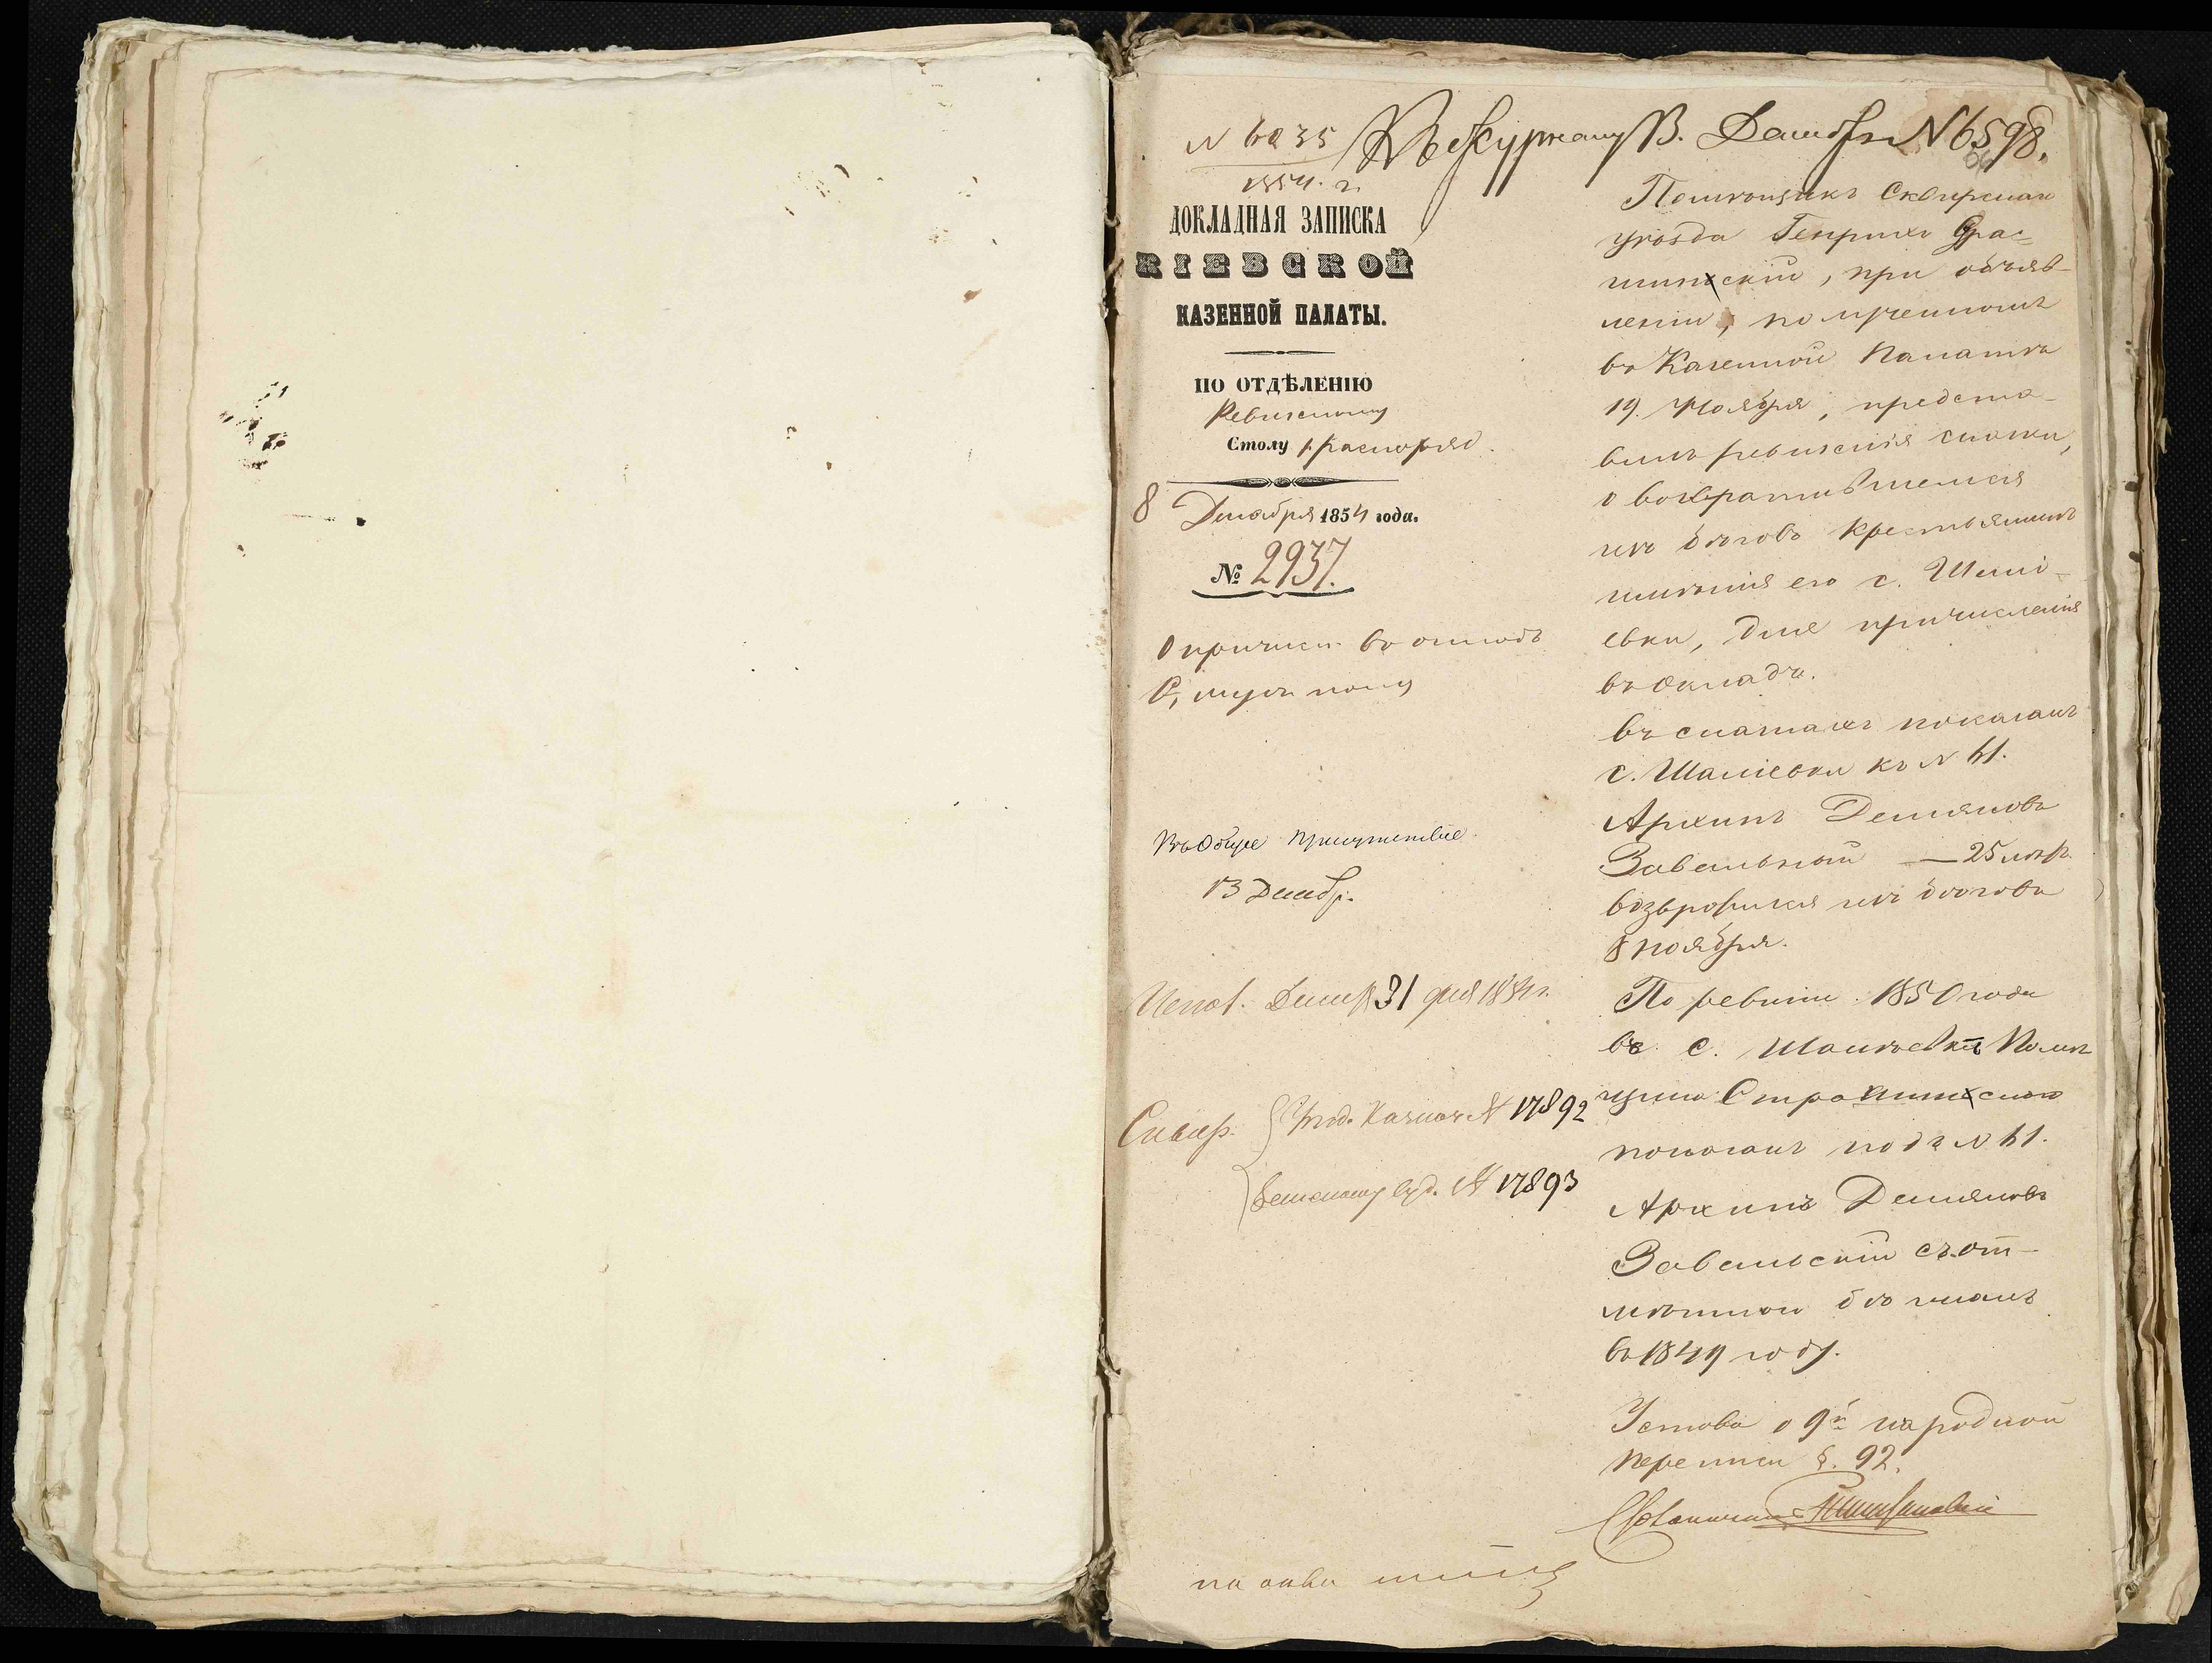 N 6035
1854. г.
Къ журналу 13. Декабря N 6598.
ДОКЛАДНАЯ ЗАПИСКА
КІЕВСКОЙ
КАЗЕННОЙ ПАЛАТЫ.
ПО ОТДѢЛЕНІЮ
Ревизскому
Столу 1 распоряд.
8 Декабря 1854 года.
№ 2937.
О причисл. въ окладъ
муж. полу
Въ Общее Присутствіе
13 Декабр.
Испол. Декабр 31 дня 1854 г.
Сквир. Уѣзд. Казнач. № 17892
Земскому суд. № 17893
Помѣщикъ Сквирскаго
уѣзда Генрихъ
при объяв-
леніи, полученномъ
въ Казенной Палатѣ
19 Ноября, предста-
вилъ ревизскія сказки,
о возвратившемся
изъ бѣговъ крестьянинѣ
имѣнія его с.
евки, для причисленія
въ окладъ.
въ сказкахъ показанъ
с. Шаліевки къ N 61.
Архипъ Демяновъ
Завальный — 25 лѣтъ
возвратился изъ бѣговъ
8 ноября.
По ревизіи 1850 года
въ с. Шаліевкѣ Помѣ-
щика
показанъ подъ N 61.
Архипъ Демяновъ
Завальскій съ от-
мѣткою бѣжалъ
въ 1849 году.
Устава о 9й народной
переписи §. 92.